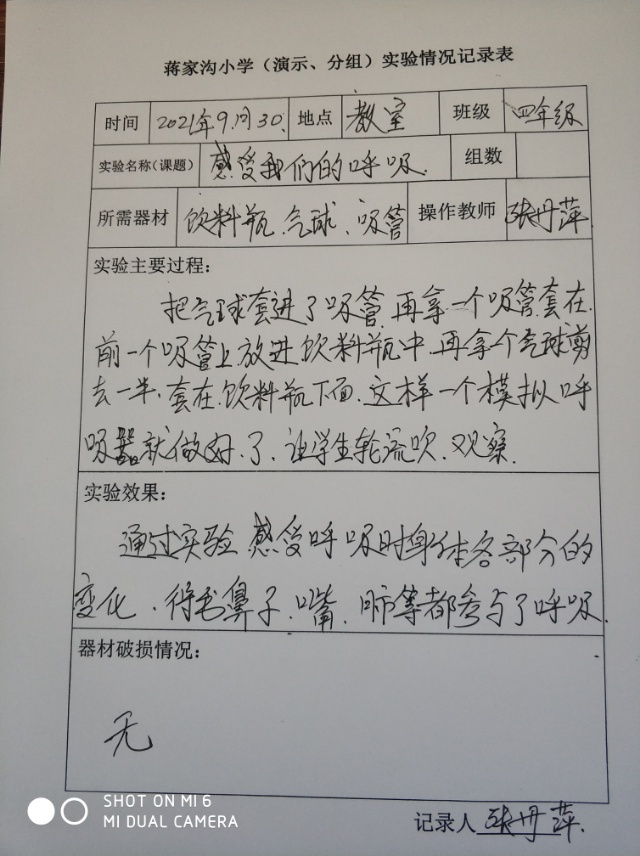 蒋家沟小学（演示、分组）实验情况记录表
时间 2021年9月30. 地点 教室 班级 四年级
实验名称（课题） 感受我们的呼吸. 组数
所需器材 饮料瓶、气球、吸管 操作教师 张丹萍
实验主要过程：
把气球套进了吸管,再拿一个吸管套在
前一个吸管上放进饮料瓶中,再拿个气球剪
去一半,套在饮料瓶下面.这样一个模拟呼
吸器就做好了,让学生轮流吹.观察.
实验效果：
通过实验 感受呼吸时身体各部分的
变化、得毛鼻子、嘴、肺等都参与了呼吸.
器材破损情况：
无
SHOT ON MI 6
MI DUAL CAMERA
记录人 张丹萍.